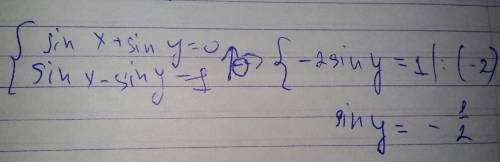 { sin x + sin y = 0
{ sin x - sin y = 1
{ -2 sin y = 1 | : (-2)
sin y = - 1/2